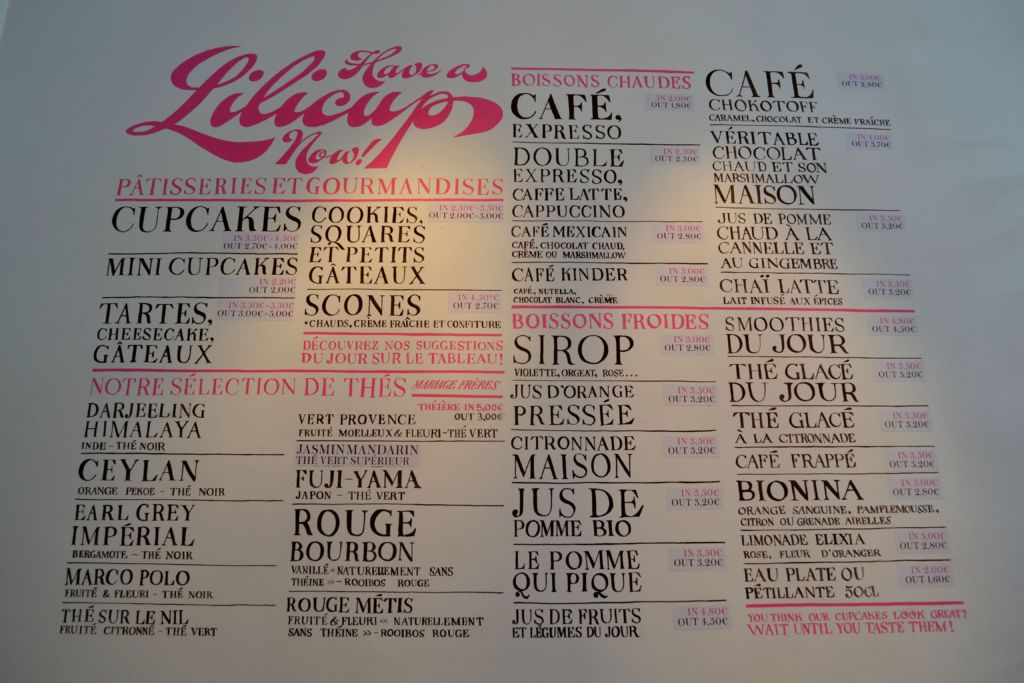 Have a
Lilicup
Now!
PÂTISSERIES ET GOURMANDISES
CUPCAKES
IN 3.50€>4.50€
OUT 2.70€>4.00€
MINI CUPCAKES
IN 2.20€
OUT 2.00€
TARTES,
CHEESECAKE,
GÂTEAUX
IN 3.50€>5.50€
OUT 3.00€>5.00€
COOKIES,
SQUARES
ET PETITS
GÂTEAUX
IN 2.50€>3.50€
OUT 2.00€>3.00€
SCONES
IN 4.50*€
OUT 2.70€
*CHAUDS, CRÈME FRAÎCHE ET CONFITURE
DÉCOUVREZ NOS SUGGESTIONS
DU JOUR SUR LE TABLEAU!
NOTRE SÉLECTION DE THÉS MARIAGE FRÈRES
THÉIÈRE IN 5,00€
OUT 3,00€
DARJEELING
HIMALAYA
INDE - THÉ NOIR
CEYLAN
ORANGE PEKOE - THÉ NOIR
EARL GREY
IMPÉRIAL
BERGAMOTE - THÉ NOIR
MARCO POLO
FRUITÉ & FLEURI - THÉ NOIR
THÉ SUR LE NIL
FRUITÉ CITRONNÉ - THÉ VERT
VERT PROVENCE
FRUITÉ MOELLEUX & FLEURI - THÉ VERT
JASMIN MANDARIN
THÉ VERT SUPÉRIEUR
FUJI-YAMA
JAPON - THÉ VERT
ROUGE
BOURBON
VANILLÉ « NATURELLEMENT SANS
THÉINE » - ROOIBOS ROUGE
ROUGE MÉTIS
FRUITÉ & FLEURI « NATURELLEMENT
SANS THÉINE » - ROOIBOS ROUGE
BOISSONS CHAUDES
CAFÉ,
EXPRESSO
IN 2.00€
OUT 1.80€
DOUBLE
EXPRESSO,
CAFFE LATTE,
CAPPUCCINO
IN 2.50€
OUT 2.30€
CAFÉ MEXICAIN
CAFÉ, CHOCOLAT CHAUD,
CRÈME OU MARSHMALLOW
IN 3.00€
OUT 2.80€
CAFÉ KINDER
CAFÉ, NUTELLA,
CHOCOLAT BLANC, CRÈME
IN 3.00€
OUT 2.80€
CAFÉ
CHÔKOTOFF
CARAMEL, CHOCOLAT ET CRÈME FRAÎCHE
IN 3.00€
OUT 2.80€
VÉRITABLE
CHOCOLAT
CHAUD ET SON
MARSHMALLOW
MAISON
IN 4.00€
OUT 3.70€
JUS DE POMME
CHAUD A LA
CANNELLE ET
AU GINGEMBRE
IN 3.50€
OUT 3.20€
CHAÏ LATTE
LAIT INFUSÉ AUX ÉPICES
IN 3.50€
OUT 3.20€
BOISSONS FROIDES
SIROP
VIOLETTE, ORGEAT, ROSE...
IN 3.00€
OUT 2.80€
JUS D'ORANGE
PRESSÉE
IN 3.50€
OUT 3.20€
CITRONNADE
MAISON
IN 3.50€
OUT 3.20€
JUS DE
POMME BIO
IN 3.50€
OUT 3.20€
LE POMME
QUI PIQUE
IN 3.50€
OUT 3.20€
JUS DE FRUITS
ET LÉGUMES DU JOUR
IN 4.80€
OUT 4.50€
SMOOTHIES
DU JOUR
IN 4.80€
OUT 4.50€
THÉ GLACÉ
DU JOUR
IN 3.50€
OUT 3.20€
THÉ GLACÉ
À LA CITRONNADE
IN 3.50€
OUT 3.20€
CAFÉ FRAPPÉ
IN 3.50€
OUT 3.20€
BIONINA
ORANGE SANGUINE, PAMPLEMOUSSE,
CITRON OU GRENADE AIRELLES
IN 3.00€
OUT 2.80€
LIMONADE ELIXIA
ROSE, FLEUR D'ORANGER
IN 3.00€
OUT 2.80€
EAU PLATE OU
PÉTILLANTE 50CL
IN 2.00€
OUT 1.60€
YOU THINK OUR CUPCAKES LOOK GREAT?
WAIT UNTIL YOU TASTE THEM!